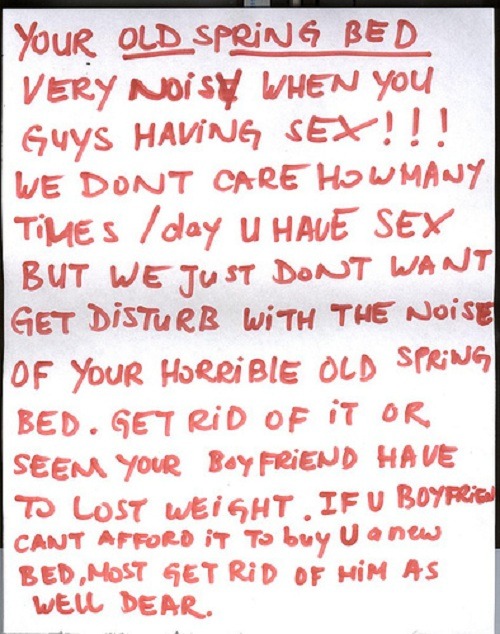 YOUR OLD SPRING BED
VERY NOISY WHEN YOU
GUYS HAVING SEX!!!
WE DONT CARE HOWMANY
TIMES /day U HAVE SEX
BUT WE JUST DONT WANT
GET DISTURB WITH THE NOISE
OF YOUR HORRIBLE OLD SPRING
BED. GET RID OF IT OR
SEEM YOUR BOYFRIEND HAVE
TO LOST WEIGHT. IF U BOYFRIEN
CANT AFFORD IT TO buy U a new
BED, MOST GET RID OF HIM AS
WELL DEAR.